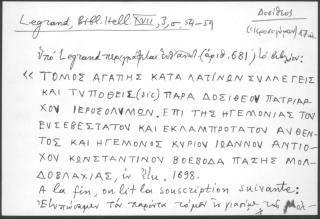 Legrand, Bibl. Hell. XVII, 3, σ. 54-59
Δοσίθεος
(Ἱεροσολύμων) 17 αἰ.
Ὑπὸ Legrand περιγράφεται (ἀριθ. 681) τὸ βιβλίον:
« ΤΟΜΟΣ ΑΓΑΠΗΣ ΚΑΤΑ ΛΑΤΙΝΩΝ ΣΥΛΛΕΓΕΙΣ
ΚΑΙ ΤΥΠΟΘΕΙΣ (sic) ΠΑΡΑ ΔΟΣΙΘΕΟΥ ΠΑΤΡΙΑΡ
ΧΟΥ ΙΕΡΟΣΟΛΥΜΩΝ, ΕΠΙ ΤΗΣ ΗΓΕΜΟΝΙΑΣ ΤΟΥ
ΕΥΣΕΒΕΣΤΑΤΟΥ ΚΑΙ ΕΚΛΑΜΠΡΟΤΑΤΟΥ ΑΥΘΕΝ
ΤΟΣ ΚΑΙ ΗΓΕΜΟΝΟΣ ΚΥΡΙΟΥ ΙΩΑΝΝΟΥ ΑΝΤΙΟ
ΧΟΥ ΚΩΝΣΤΑΝΤΙΝΟΥ ΒΟΕΒΟΔΑ ΠΑΣΗΣ ΜΟΛ-
ΔΟΒΛΑΧΙΑΣ, ἐν ἔτει, 1698.
A la fin, on lit la souscription suivante:
τὸν παρόντα τόμον ἐν Γιασίῳ τῆς Μολ-